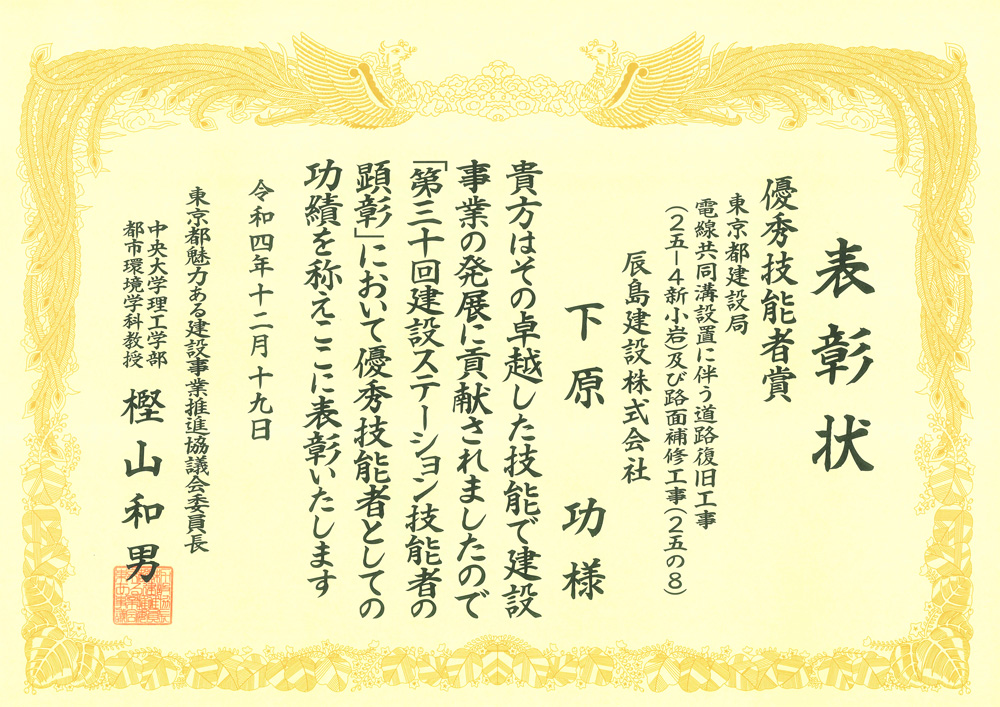 表彰状
優秀技能者賞
東京都建設局
電線共同溝設置に伴う道路復旧工事
(25-4新小岩)及び路面補修工事(25の8)
辰島建設株式会社
下原 功 様
貴方はその卓越した技能で建設
事業の発展に貢献されましたので
「第三十回建設ステーション技能者の
顕彰」において優秀技能者としての
功績を称えここに表彰いたします
令和四年十二月十九日
東京都魅力ある建設事業推進協議会委員長
中央大学理工学部
都市環境学科教授
樫山和男